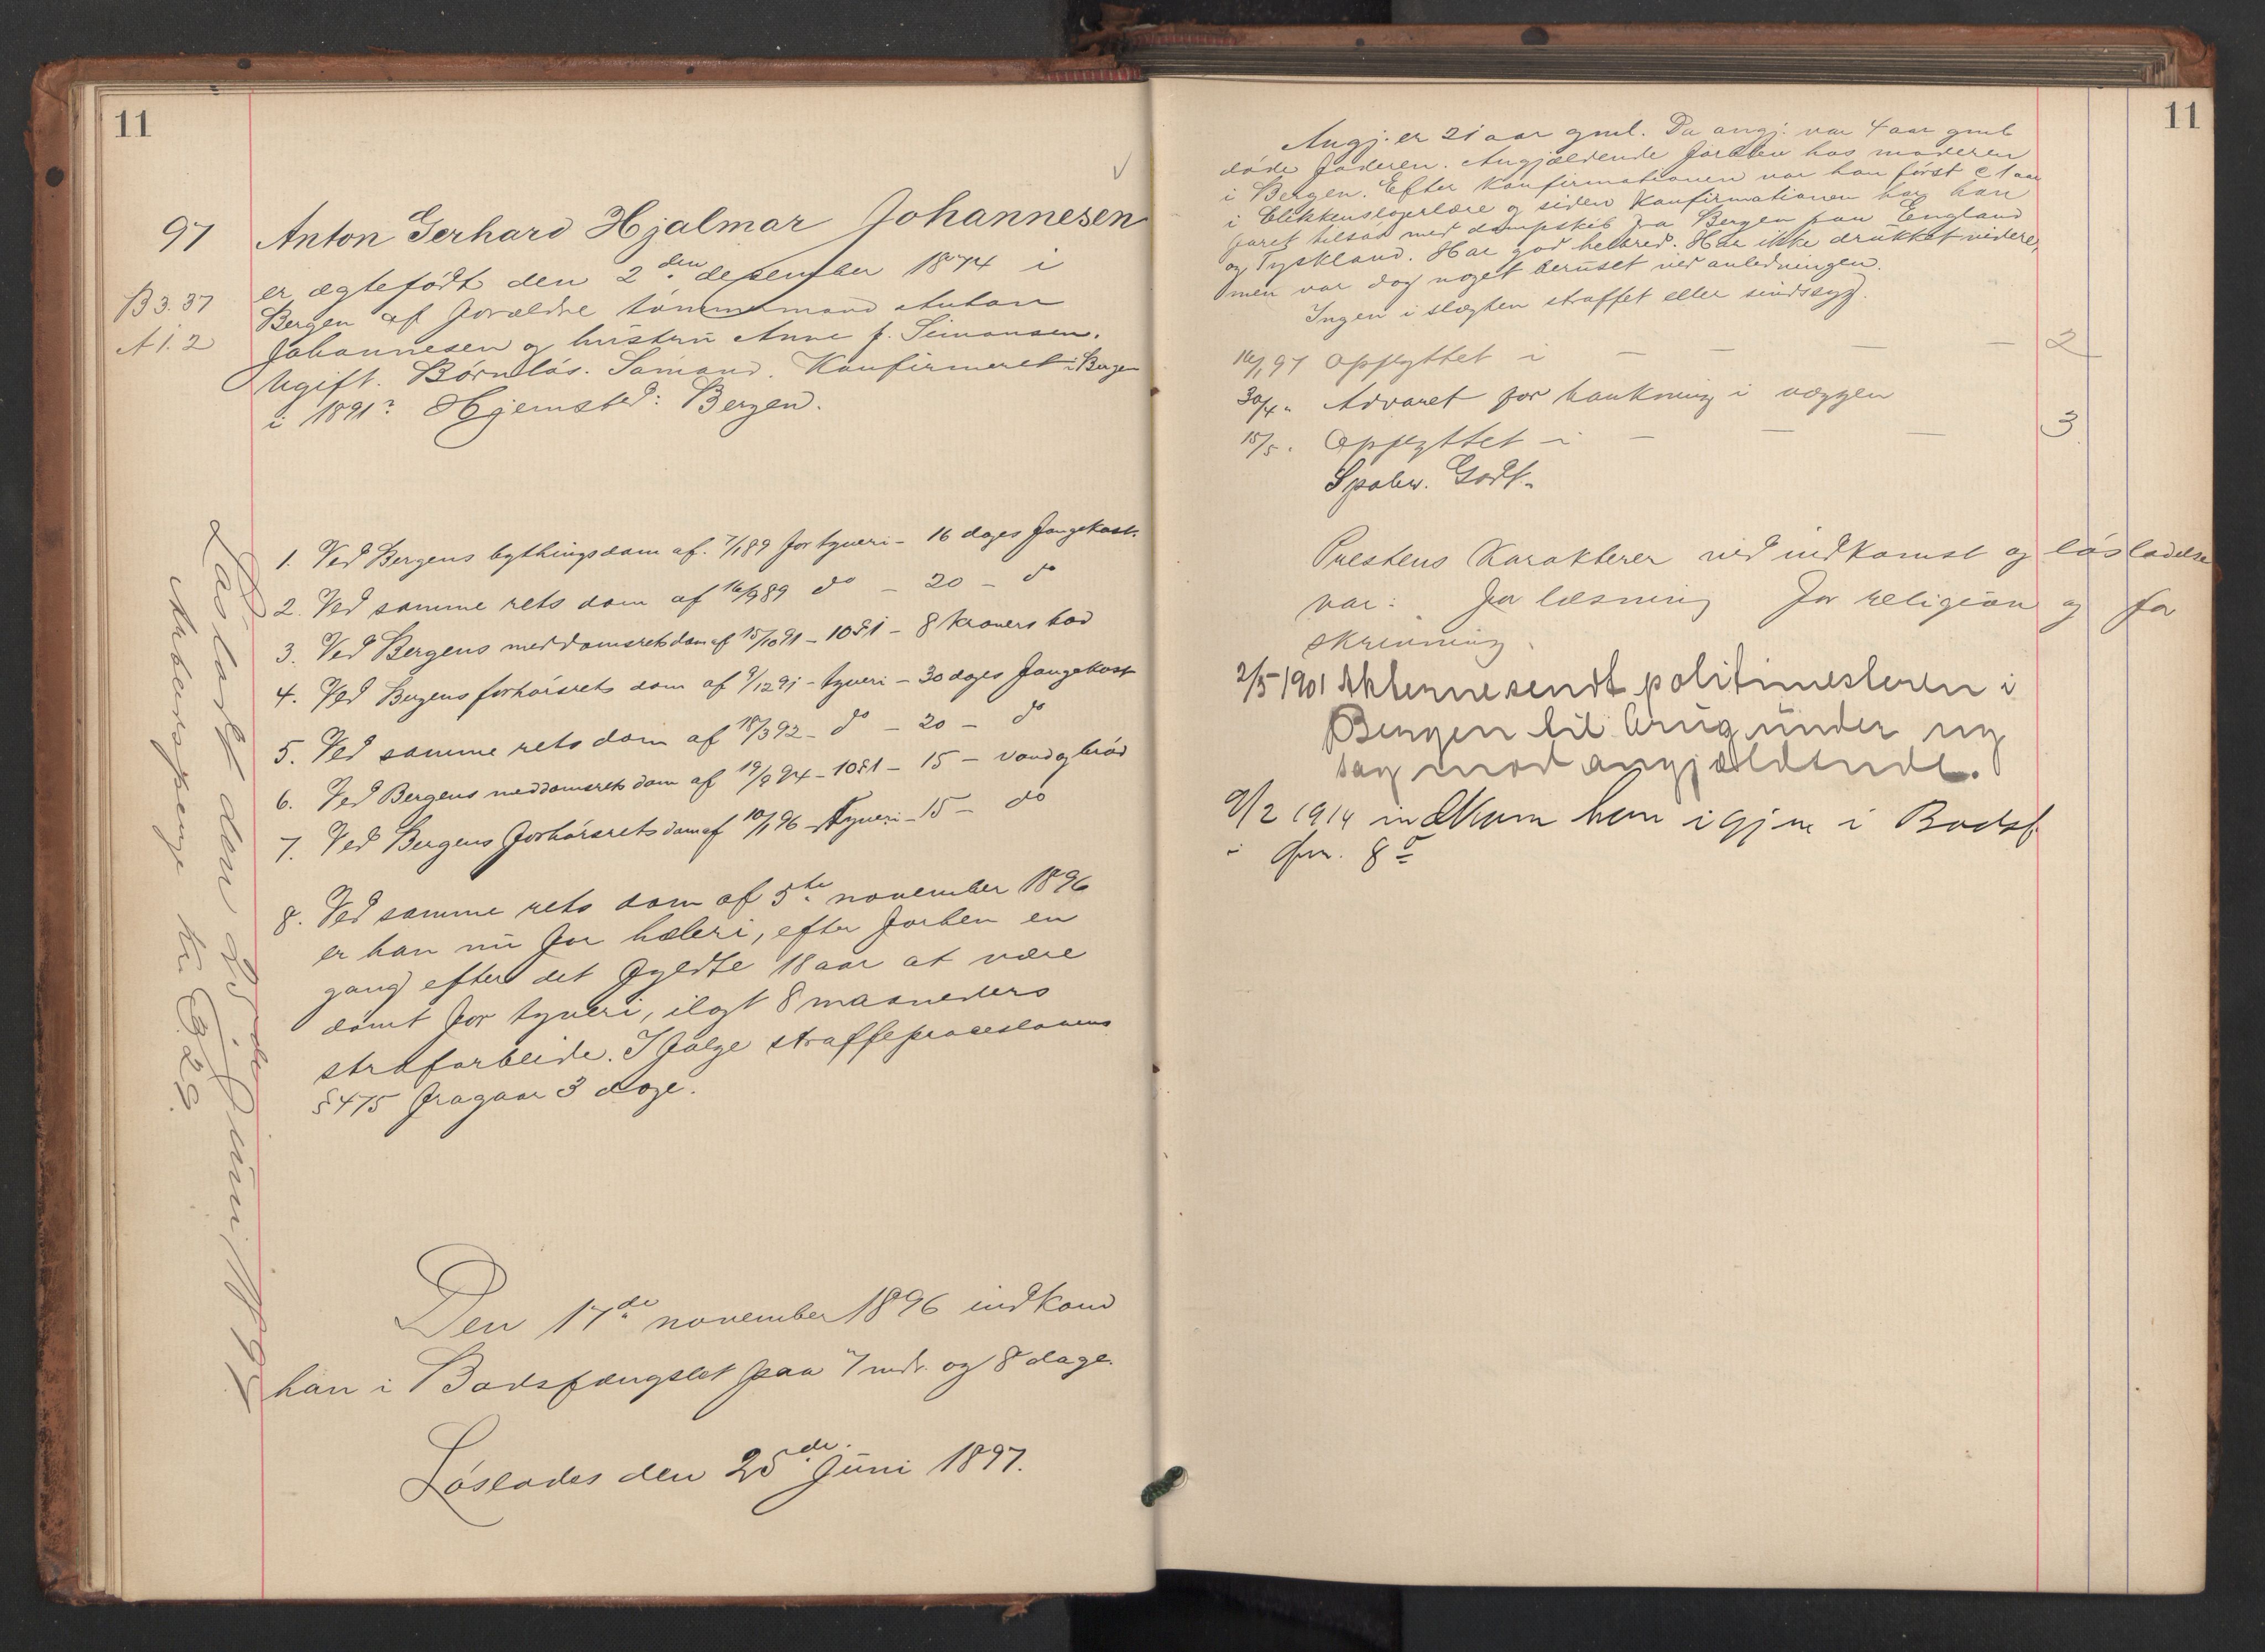 11
97
Anton Gerhard Hjalmar Johannesen
er ægtefödt den 2den desember 1874 i
B 3. 37
Bergen af forældre tömmermand Anton
A 1. 2
Johannesen og hustru Anne f. Simonsen.
Ugift. Barnlös. Sömand. Konfirmeret i Bergen
i 1891? Hjemsted: Bergen.
1. Ved Bergens bythingsdom af 7/1 89 for tyveri - 16 dages fangekost.
2. Ved samme rets dom af 16/9 89 do - 20 - do
3. Ved Bergens meddomsrets dom af 15/10 91 - 10 § 1 - 8 kroners bod
4. Ved Bergens forhörsrets dom af 9/12 91 - tyveri - 30 dages fangekost
5. Ved samme rets dom af 18/3 92 - do - 20 - do
6. Ved Bergens meddomsrets dom af 19/9 94 - 10 § 1 - 15 - vand og bröd
7. Ved Bergens forhörsrets dom af 10/1 96 - Tyveri - 15 - do
8. Ved samme rets dom af 5te november 1896
er han nu for hæleri, efter förben en
gang efter det fyldte 18 aar at være
dömt for tyveri, ilagt 8 maaneders
strafarbeide. I fölge straffeproceslovens
§ 475 fragaar 3 dage.
Den 17de november 1896 indkom
han i Bodsfængslet paa 7 mdr. og 8 dage.
Löslades den 25de Juni 1897.
Lösladt den 25de Juni 1897
Arbeidspenge kr. 8.29.
11
Angj. er 21 aar gml. Da angj. var 4 aar gml
döde faderen. Angjældende forblev hos moderen
i Bergen. Efter konfirmationen var han först c 1 aar
i blikkenslagerlære og siden konfirmationen har han
faret tilsös med dampskib fra Bergen paa England
og Tyskland. Har god helbred. Har ikke drukket videre,
men var dog noget beruset ved anledningen.
Ingen i slægten straffet eller sindssyg.
16/1 97 Opflyttet i — — — — 2
30/4 " Advaret for bankning i væggen
15/5 " Opflyttet i — — — 3
Godt.
Prestens karakterer ved indkomst og lösladelse
var: for læsning for religion og for
skrivning.
2/5 1901 Akterne sendt politimesteren i
Bergen til brug under ny
sag mod angjældende.
9/2 1914 indkom han igjen i Bodsf.
i 8